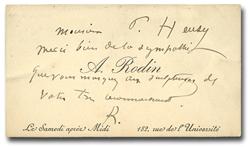 Monsieur P. Heusy
merci bien de la sympathie
que vous marquez aux sculptures de
A. Rodin
votre
R.
Le Samedi après Midi 182, rue de l'Université